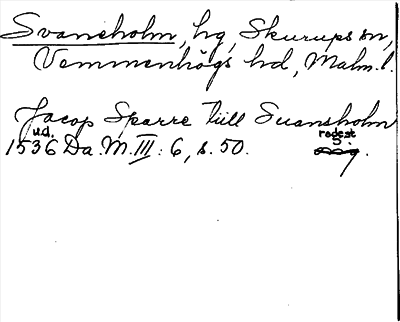 Svaneholm, hg, Skurups sn,
Vemmenhögs hd, Malm. l.
Jacop Sparre tiill Suansholm
u.d. regest
1536 Da. M. III: 6, s. 50.